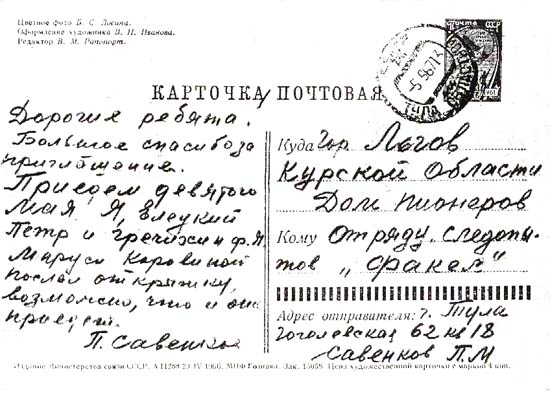 Цветное фото Б. С. Лосина.
Оформление художника В. П. Иванова.
Редактор В. М. Рапопорт.
ПОЧТА СССР
КАРТОЧКА ПОЧТОВАЯ
Дорогие ребята.
Большое спасибо за
приглашение.
Приедем девятого
Мая Я, Елецкий
Петр и Гречихин Ф.Я.
Маруси Коровиной
послал открытку,
возможно, что и она
приедет.
П. Савенков
Куда гор Льгов
Курской Области
Дом пионеров
Кому Отряду следопы-
тов „Факел"
Адрес отправителя: г. Тула
Гоголевская 62 кв 18
Савенков П.М
Издание Министерства связи СССР. А 11288 29/IV 1966. МПФ Гознака. Зак. 15058. Цена художественной карточки с маркой 4 коп.